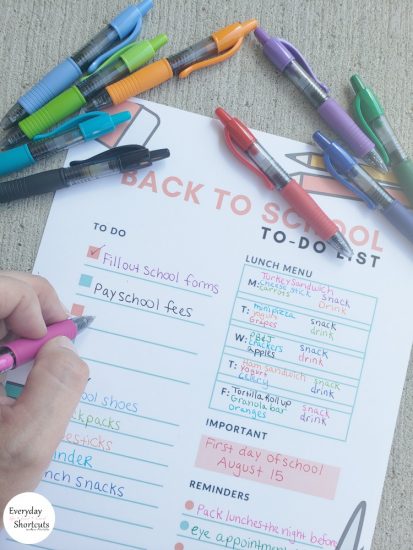 BACK TO SCHOOL
TO-DO LIST
TO DO
Fill out school forms
Pay school fees
school shoes
backpacks
nch snacks
LUNCH MENU
M: Turkey Sandwich
cheese stick
carrots
snack
drink
T: mini pizza
yogurt
grapes
snack
drink
W: PB&J
crackers
apples
snack
drink
T: Ham Sandwich
yogurt
celery
snack
drink
F: Tortilla Roll up
Granola bar
Oranges
snack
drink
IMPORTANT
First day of school
August 15
REMINDERS
Pack lunches the night before
eye appointment
Everyday
Shortcuts